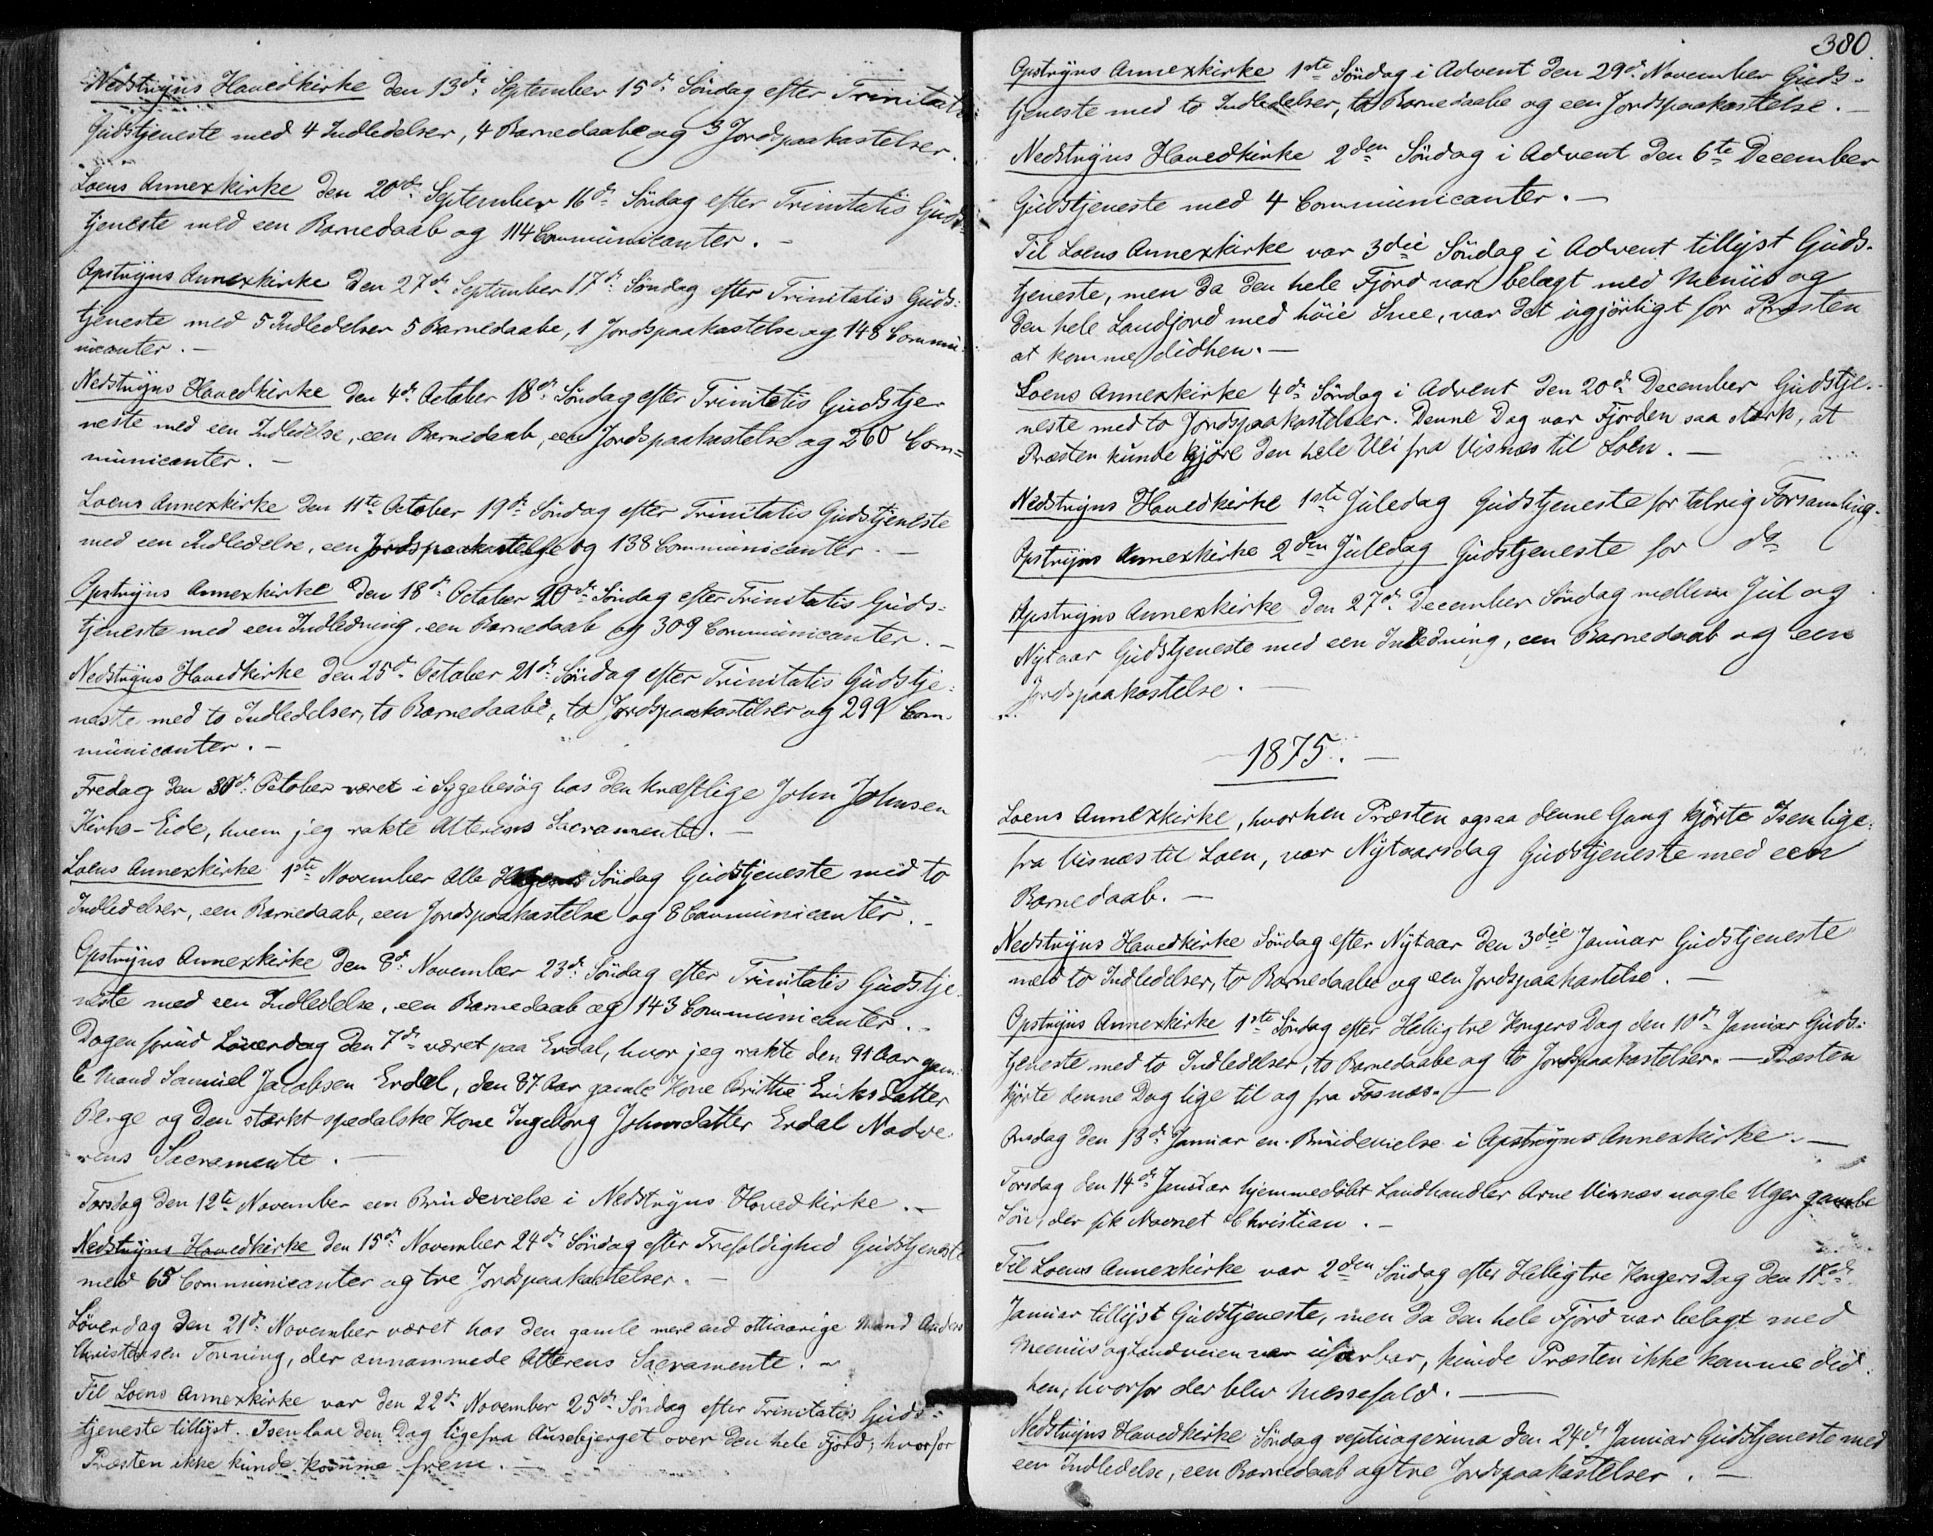 Nedstryns Hovedkirke den 13de September 15de Søndag efter Trinitatis
Gudstjeneste med 4 Indledelser, 4 Barnedaabe og 3 Jordspaakastelser.
Loens Annexkirke den 20de September 16de Søndag efter Trinitatis Guds-
tjeneste med een Barnedaab og 114 Communicanter. –
Opstryns Annexkirke den 27de September 17de Søndag efter Trinitatis Guds-
tjeneste med 5 Indledelser 5 Barnedaabe, 1 Jordspaakastelse og 148 Commu-
nicanter. –
Nedstryns Hovedkirke den 4de October 18de Søndag efter Trinitatis Gudstje-
neste med een Indledelse, een Barnedaab, een Jordspaakastelse og 260 Com-
municanter. –
Loens Annexkirke den 11te October 19de Søndag efter Trinitatis Gudstjeneste
med een Indledelse, een Jordspaakastelse og 138 Communicanter. –
Opstryns Annexkirke den 18de October 20de Søndag efter Trinitatis Guds-
tjeneste med een Indledning, een Barnedaab og 309 Communicanter. –
Nedstryns Hovedkirke den 25de October 21de Søndag efter Trinitatis Gudstje-
neste med to Indledelser, to Barnedaabe, to Jordspaakastelser og 299 Com-
municanter. –
Fredag den 30de October været i Sygebesøg hos den kræftlige John Johnsen
Kirke-Eide, hvem jeg rakte Alterens Sacramente. –
Loens Annexkirke 1ste November Alle Helgens Søndag Gudstjeneste med to
Indledelser, een Barnedaab, een Jordspaakastelse og 8 Communicanter. –
Opstryns Annexkirke den 8de November 23de Søndag efter Trinitatis Gudstje-
neste med een Indledelse, een Barnedaab og 143 Communicanter. –
Dagen forud Løverdag den 7de været paa Erdal, hvor jeg rakte den 91 Aar gam-
le Mand Samuel Jacobsen Erdal, den 87 Aar gamle Kone Brithe Eriksdatter
Berge og den stærkt spedalske Kone Ingeborg Johnsdatter Erdal Nadve-
rens Sacramente. –
Torsdag den 12te November een Brudevielse i Nedstryns Hovedkirke. –
Nedstryns Hovedkirke den 15de November 24de Søndag efter Trefoldighed Gudstjeneste
med 65 Communicanter og tre Jordspaakastelser. –
Løverdag den 21de November været hos den gamle mere end ottiaarige Mand Anders
Christensen Tonning, der annammede Alterens Sacramente. –
Til Loens Annexkirke var den 22de November 25de Søndag efter Trinitatis Guds-
tjeneste tillyst. Isen laae den Dag lige fra Ausebjerget over den hele Fjord; hvorfor
Præsten ikke kunde komme frem. –
380.
Opstryns Annexkirke 1ste Søndag i Advent den 29de November Guds-
tjeneste med to Indledelser, to Barnedaabe og een Jordspaakastelse. –
Nedstryns Hovedkirke 2den Søndag i Advent den 6te December
Gudstjeneste med 4 Communicanter. –
Til Loens Annexkirke var 3die Søndag i Advent tillyst Guds-
tjeneste, men da den hele Fjord var belagt med Meniis og
den hele Landjord med høie Snee, var det ugjørligt for Præsten
at komme didhen. –
Loens Annexkirke 4de Søndag i Advent den 20de December Gudstje-
neste med to Jordspaakastelser. Denne Dag var Fjorden saa stærk, at
Præsten kunde kjøre den hele Vei fra Visnæs til Loen. –
Nedstryns Hovedkirke 1ste Juledag Gudstjeneste for talrig Forsamling.
Opstryns Annexkirke 2den Juledag Gudstjeneste for do
Opstryns Annexkirke den 27de December Søndag mellem Jul og
Nytaar Gudstjeneste med een Indledning, een Barnedaab og een
Jordspaakastelse. –
1875. –
Loens Annexkirke, hvorhen Præsten ogsaa denne Gang kjørte Isen lige
fra Visnæs til Loen, var Nytaarsdag Gudstjeneste med een
Barnedaab. –
Nedstryns Hovedkirke Søndag efter Nytaar den 3die Januar Gudstjeneste
med to Indledelser, to Barnedaabe og een Jordspaakastelse. –
Opstryns Annexkirke 1ste Søndag efter Hellig tre Kongers Dag den 10de Januar Guds-
tjeneste med to Indledelser, to Barnedaabe og to Jordspaakastelser. – Præsten
kjørte denne Dag lige til og fra Fosnæs. –
Onsdag den 13de Januar en Brudevielse i Opstryns Annexkirke. –
Torsdag den 14de Januar hjemmedøbt Landhandler Arne Visnæs nogle Uger gamle
Søn, der fik Navnet Christian. –
Til Loens Annexkirke var 2den Søndag efter Hellig tre Kongers Dag den 18de
Januar tillyst Gudstjeneste, men da den hele Fjord var belagt med
Meniis og Landveien var ufarbar, kunde Præsten ikke komme did
hen, hvorfor der blev Messefald. –
Nedstryns Hovedkirke Søndag septuagesima den 24de Januar Gudstjeneste med
een Indledelse, een Barnedaab og tre Jordspaakastelser. –